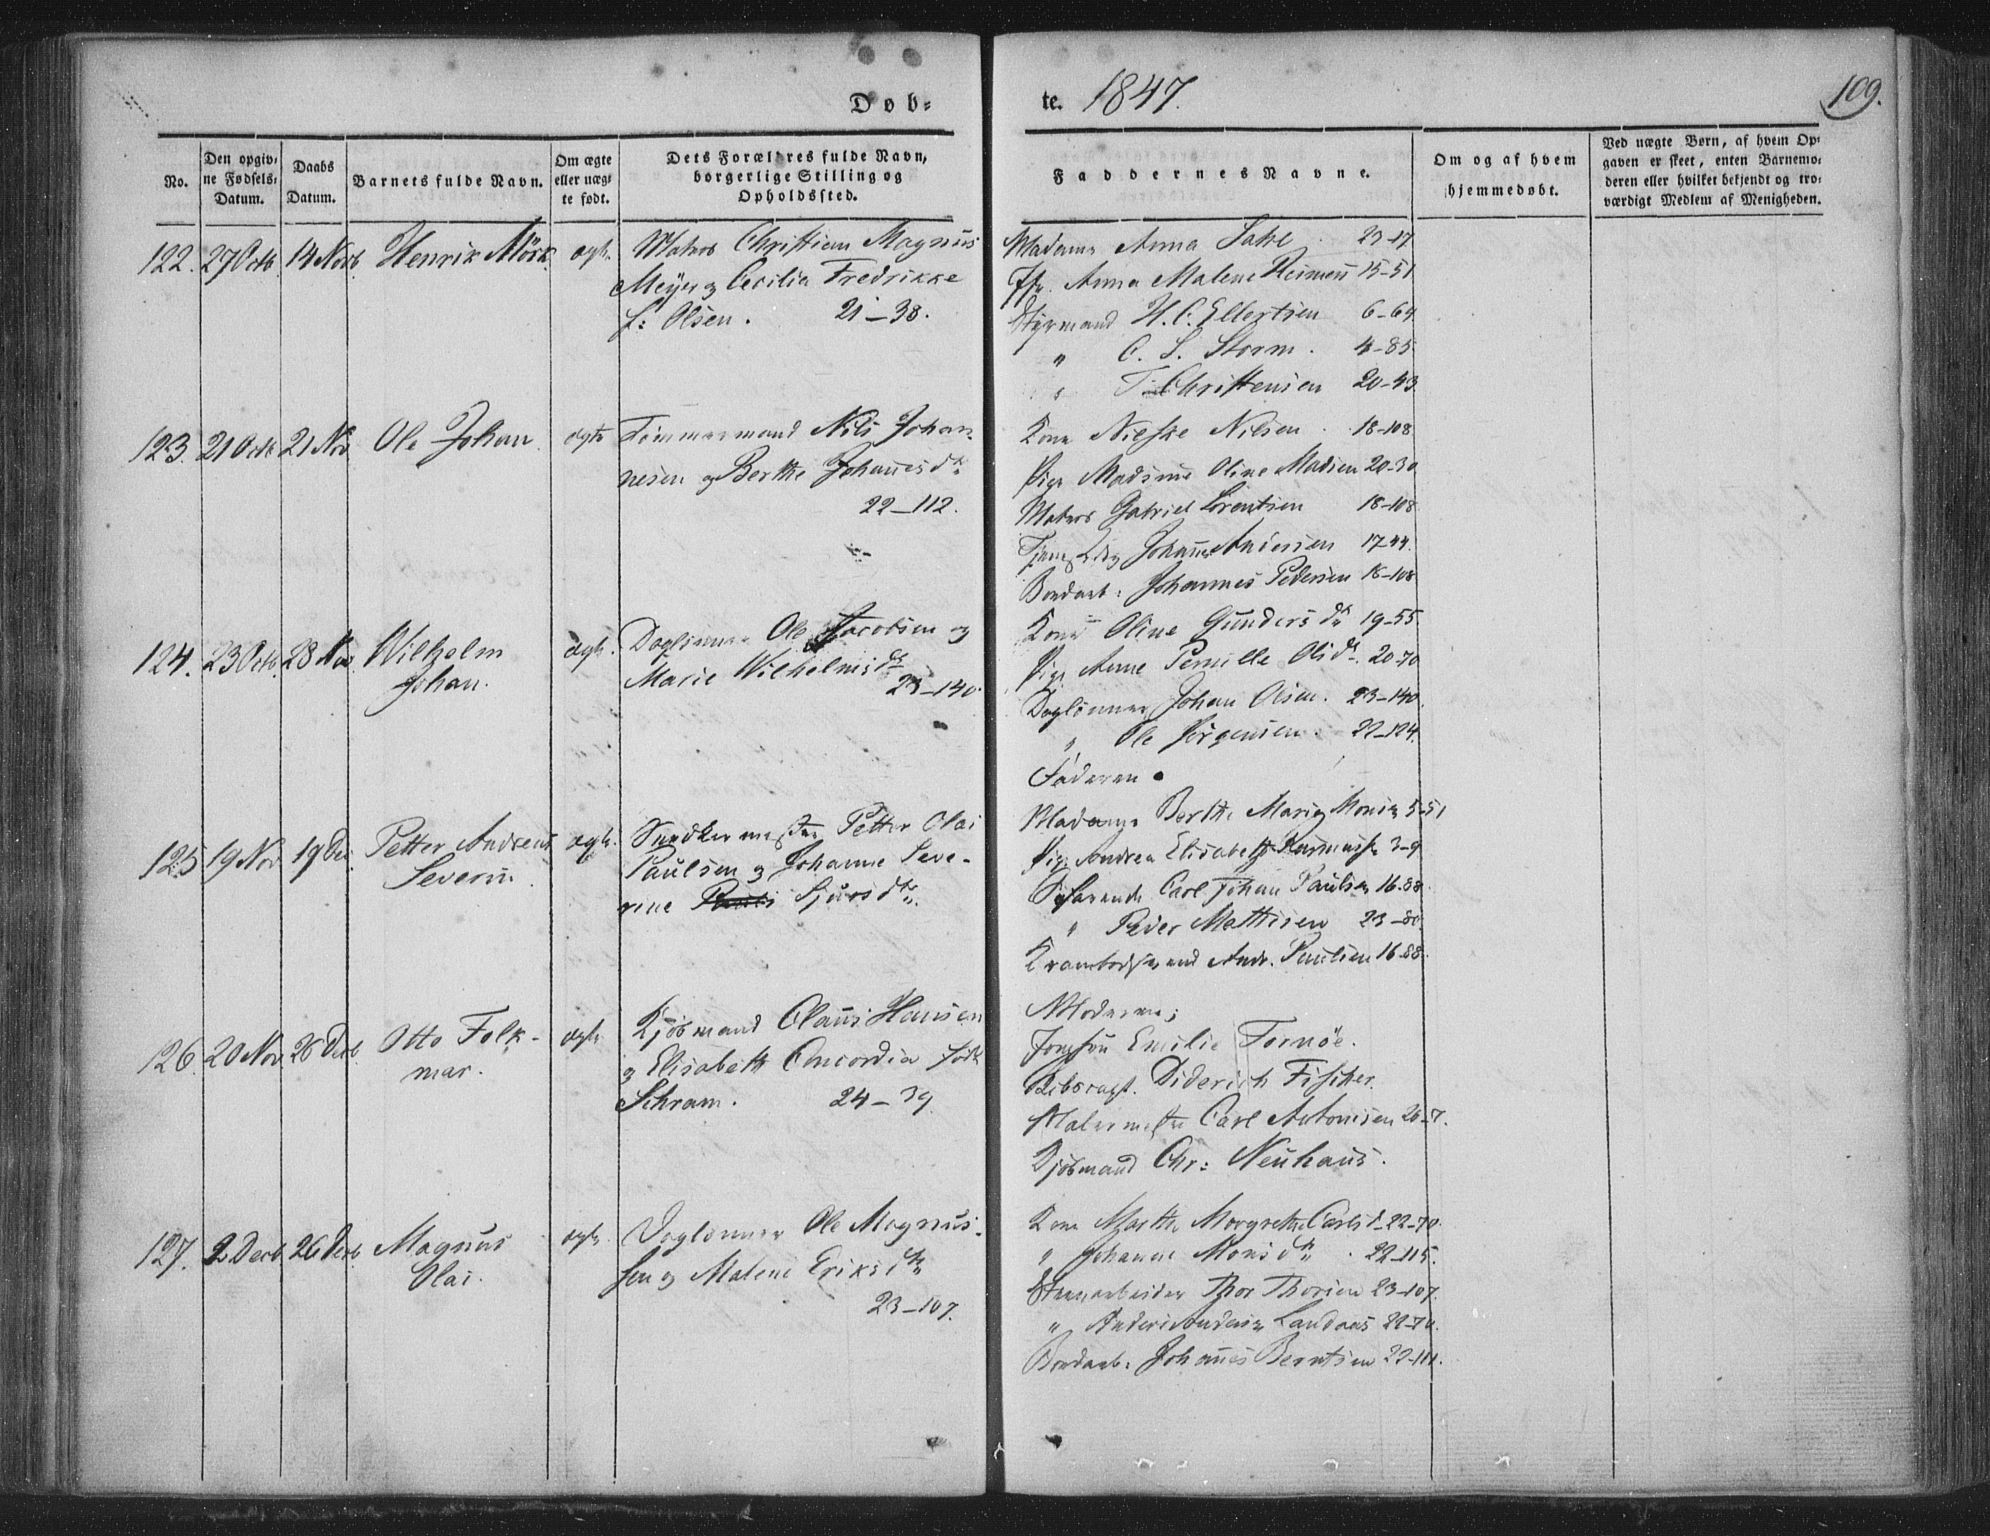 Døb-
te. 1847.
109.
No.
Den opgiv-
ne Fødsels-
Datum.
Daabs
Datum.
Barnets fulde Navn.
Om ægte
eller uægt
te født.
Dets Forældres fulde Navn,
borgerlige Stilling og
Opholdssted.
Faddernes Navne.
Om og af hvem
hjemmedøbt.
Ved uægte Børn, af hvem Op-
gaven er skeet, enten Barnemo-
deren eller hvilket bekjendt og tro-
værdigt Medlem af Menigheden.
122. 27 Octb. 14 Novb. Henrik Mörk. ægte. Matros Christian Magnus
Meyer og Cecilia Fredrikke
f: Olsen. 21-38.
Madame Anna 23-17
Anna Malene 15-51
Styrmand H. C. Ellertsen 6-64
" C. S. Storm. 4-85.
" T. Christensen 20-43
123. 21 Octb 21 Nov Ole Johan. ægte Tömmermand Nils Johan-
nesen og Berthe Johannesdtr
22-112.
Kone Nilsen. 18-108
Pige Madsine Oline Madsen 20-30
Matros Gabriel Lorentsen 18-108
Johannes Andersen 17-44.
Bordarb: Johannes Pedersen 18-108
124. 23 Octb. 28 Nov. Wilhelm
Johan.
ægte. Daglönner Ole Jacobsen og
Marie Wilhelmsdtr
23-140.
Kone Oline Gundersdtr 19-55.
Pige Anne Pernille Olsdtr. 20-70
Daglönner Johan Olsen. 23-140.
" Ole Jörgensen. 22-124.
Faderen.
125 19 Nov 19 Dec. Petter Andreas
Severin.
ægte. Snedkermester Petter Olai
Paulsen og Johanne Seve-
rine Sjursdtr.
Madame Berthe Marie Monsen 5-51
Pige Andrea Elisabeth Rasmussen 3-9
Söfarende Carl Johan Paulsen 16-88.
" Peder Mathisen 23-80.
Krambodsvend Andr. Paulsen 16-88.
126. 20 Nov. 26 Decb Otto Folk-
mar.
ægte Kjöbmand Olaus Hansen
og Elisabeth Concordia födt
Schram. 24-39.
Moderen;
Jomfru Emilie Tornöe.
Diderich Fischer.
Malermester Carl Antonisen 26-7.
Kjöbmand Chr: Neuhaus.
127. 2 Decb. 26 Decb. Magnus
Olai.
ægte. Daglönner Ole Magnus-
sen og Malene Eriksdtr
23-107.
Kone Marthe Margrethe Carlsd. 22-70.
" Johanne Monsdtr. 22-115.
Steenarbeider Thor Thorsen 23-107.
" Anders Andersen Landaas 22-70.
Bordarb: Johannes Berntsen 22-111.